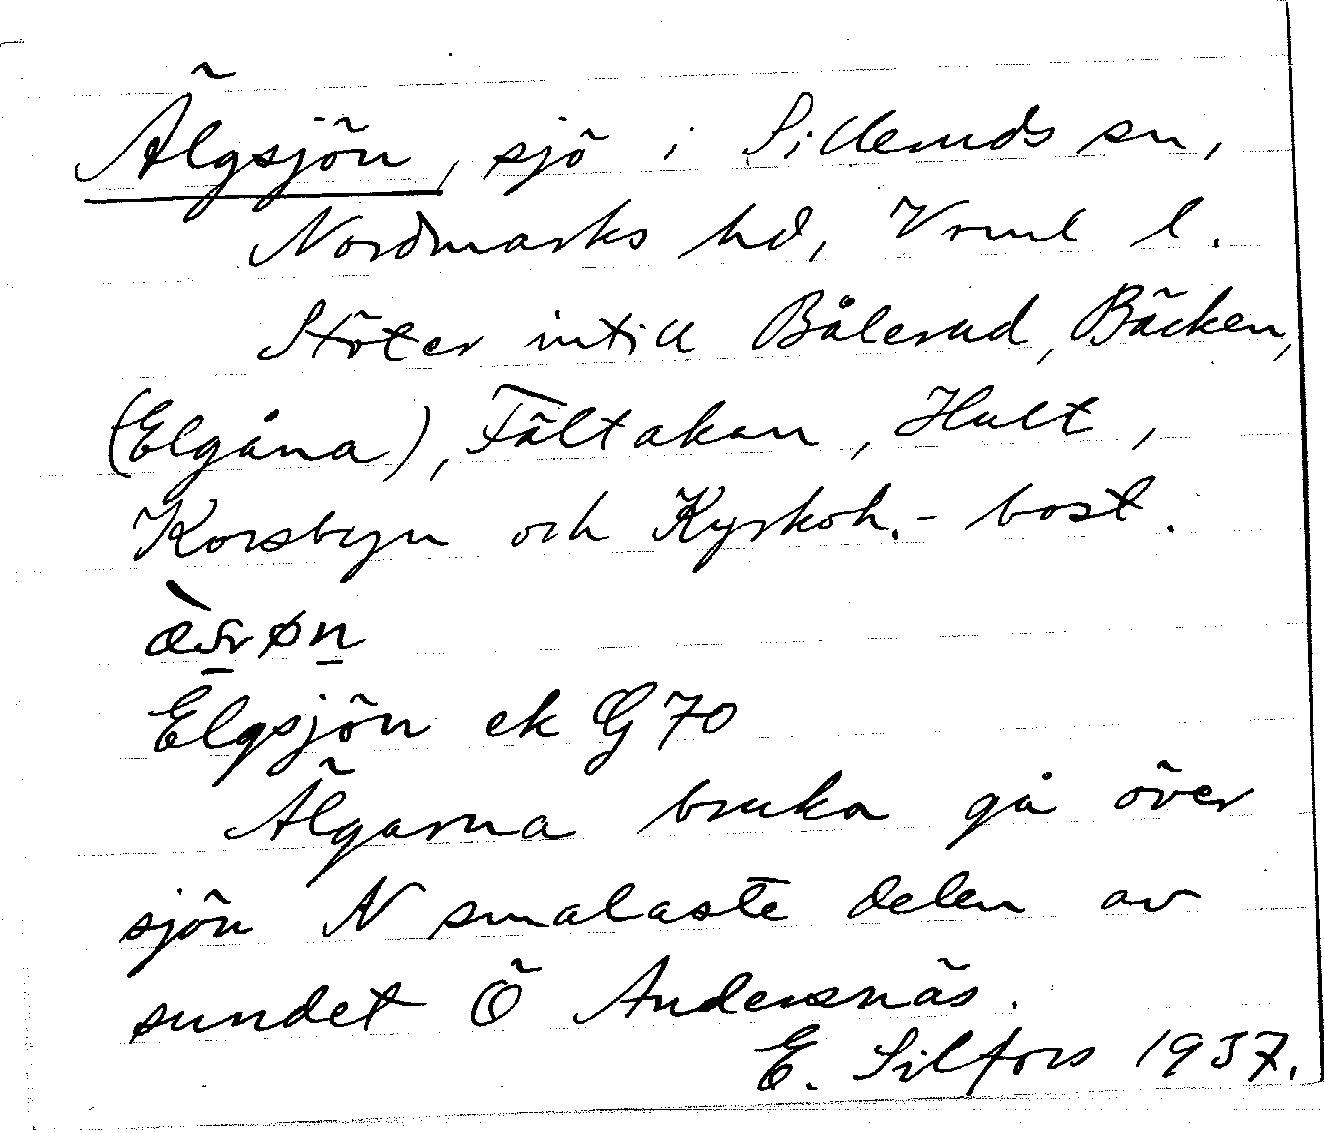 Älgsjön, sjö i Sillemds sn,
Nordmarks hd, Vrml l.
Stöter intill Bålerud, Bäcken,
(Elgåna), Fältakan, Hult,
Korsbyn och Kyrkoh.- bost.
Elgsjön ek G 70
Älgarna bruka gå över
sjön N smalaste delen av
sundet Ö Andersnäs.
E. Silfors 1937.